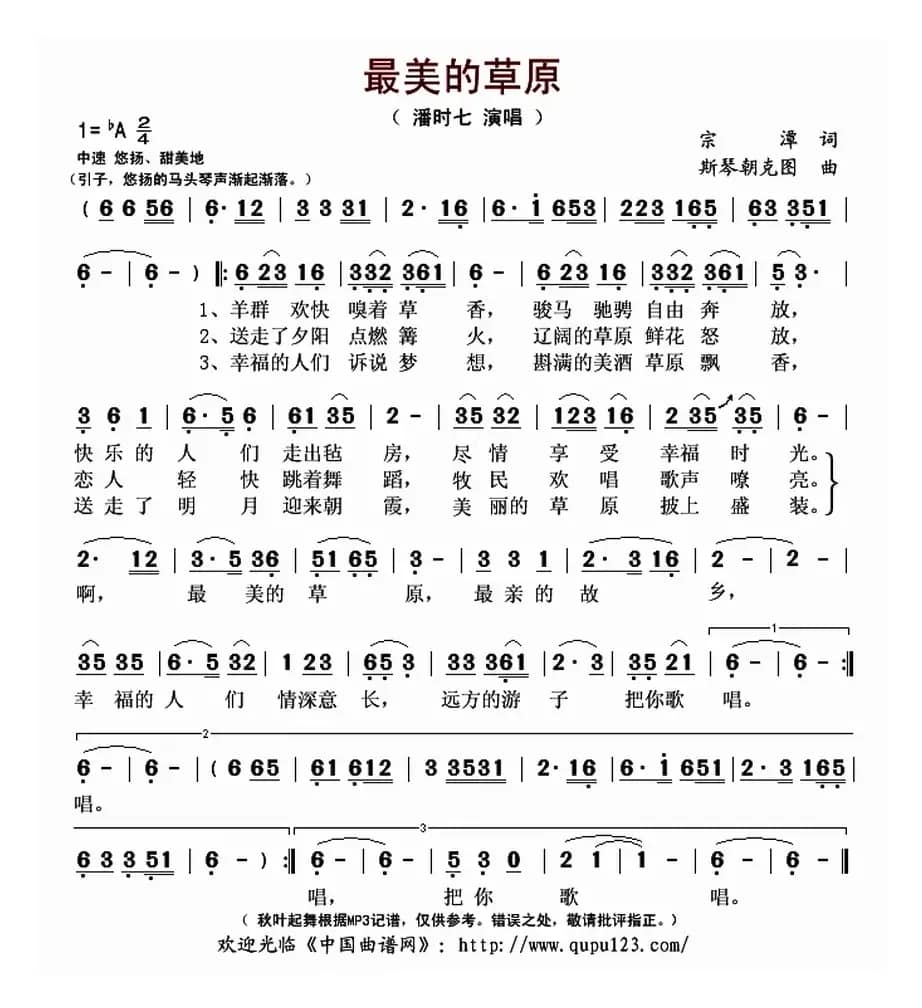 最美的草原
（ 潘时七 演唱 ）
1= ♭A 2/4
宗 潭 词
中速 悠扬、甜美地
斯琴朝克图 曲
（引子，悠扬的马头琴声渐起渐落。）
( 6 6 56 | 6· 12 | 3 3 31 | 2· 16 | 6· i 653 | 223 165 | 63 351 |
6 - | 6 - ) |: 6 23 16 | 332 361 | 6 - | 6 23 16 | 332 361 | 5 3· |
1、羊群 欢快 嗅着 草 香， 骏马 驰骋 自由 奔 放，
2、送走了夕阳 点燃 篝 火， 辽阔的草原 鲜花 怒 放，
3、幸福的人们 诉说 梦 想， 斟满的美酒 草原 飘 香，
3 6 1 | 6· 5 6 | 61 35 | 2 - | 35 32 | 123 16 | 2 35 35 | 6 - |
快 乐 的 人 们 走出毡 房， 尽 情 享 受 幸福 时 光。
恋 人 轻 快 跳着舞 蹈， 牧 民 欢 唱 歌声 嘹 亮。
送 走 了 明 月 迎来朝 霞， 美 丽的 草 原 披上 盛 装。
2· 12 | 3· 5 36 | 51 65 | 3 - | 3 3 1 | 2· 3 16 | 2 - | 2 - |
啊， 最 美的 草 原， 最 亲 的 故 乡，
1
35 35 | 6· 5 32 | 1 23 | 65 3 | 33 361 | 2· 3 | 35 21 | 6 - | 6 - :|
幸 福的 人 们 情深意 长， 远方的游 子 把你歌 唱。
2
6 - | 6 - | ( 6 65 | 61 612 | 3 3531 | 2· 16 | 6· i 651 | 2· 3 165 |
唱。
3
6 3 3 51 | 6 - ) :| 6 - | 6 - | 5 3 0 | 2 1 | 1 - | 6 - | 6 - ‖
唱， 把 你 歌 唱。
（ 秋叶起舞根据MP3记谱，仅供参考。错误之处，敬请批评指正。）
欢迎光临《中国曲谱网》：http://www.qupu123.com/